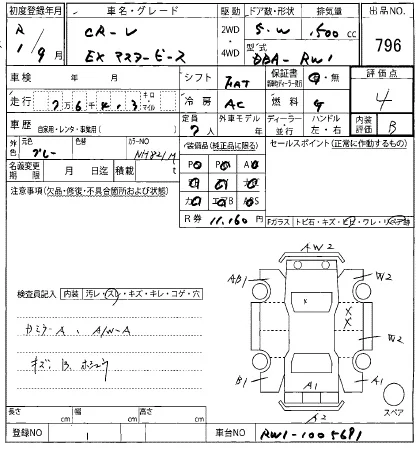 初度登録年月 車名・グレード 駆動 ドア数・形状 排気量 出品NO.
R CR-V 2WD 5.W .500cc
1/9月 EX マスターピース 4WD 型式 DBA-RW1 796
車検 年 月 シフト FAT 保証書 有・無 評価点
走行 7万6千4.3 キロ マイル 冷房 AC 燃料 G 4
車歴 自家用・レンタ・事業用( ) 定員 7人 外車モデル 年 ディーラー・並行 ハンドル 左・右 内装評価 B
外色 元色 グレー 色替 カラーNO NH821M 装備品(純正品に限る) セールスポイント(正常に作動するもの)
名義変更期限 月 日迄 積載 t
注意事項(欠品・修復・不具合箇所および状態)
R券 11.160円 Fガラス トビ石・キズ・ヒビ・ワレ・リペア跡
AW2
AB1 W2
検査員記入 内装 汚レ・スレ・キズ・キレ・コゲ・穴
X
X
X
W2
キズ、B、
B1 A1 A1
A2 スペア
長さ cm 幅 cm 高さ cm
登録NO 1 車台NO RW1-1005691